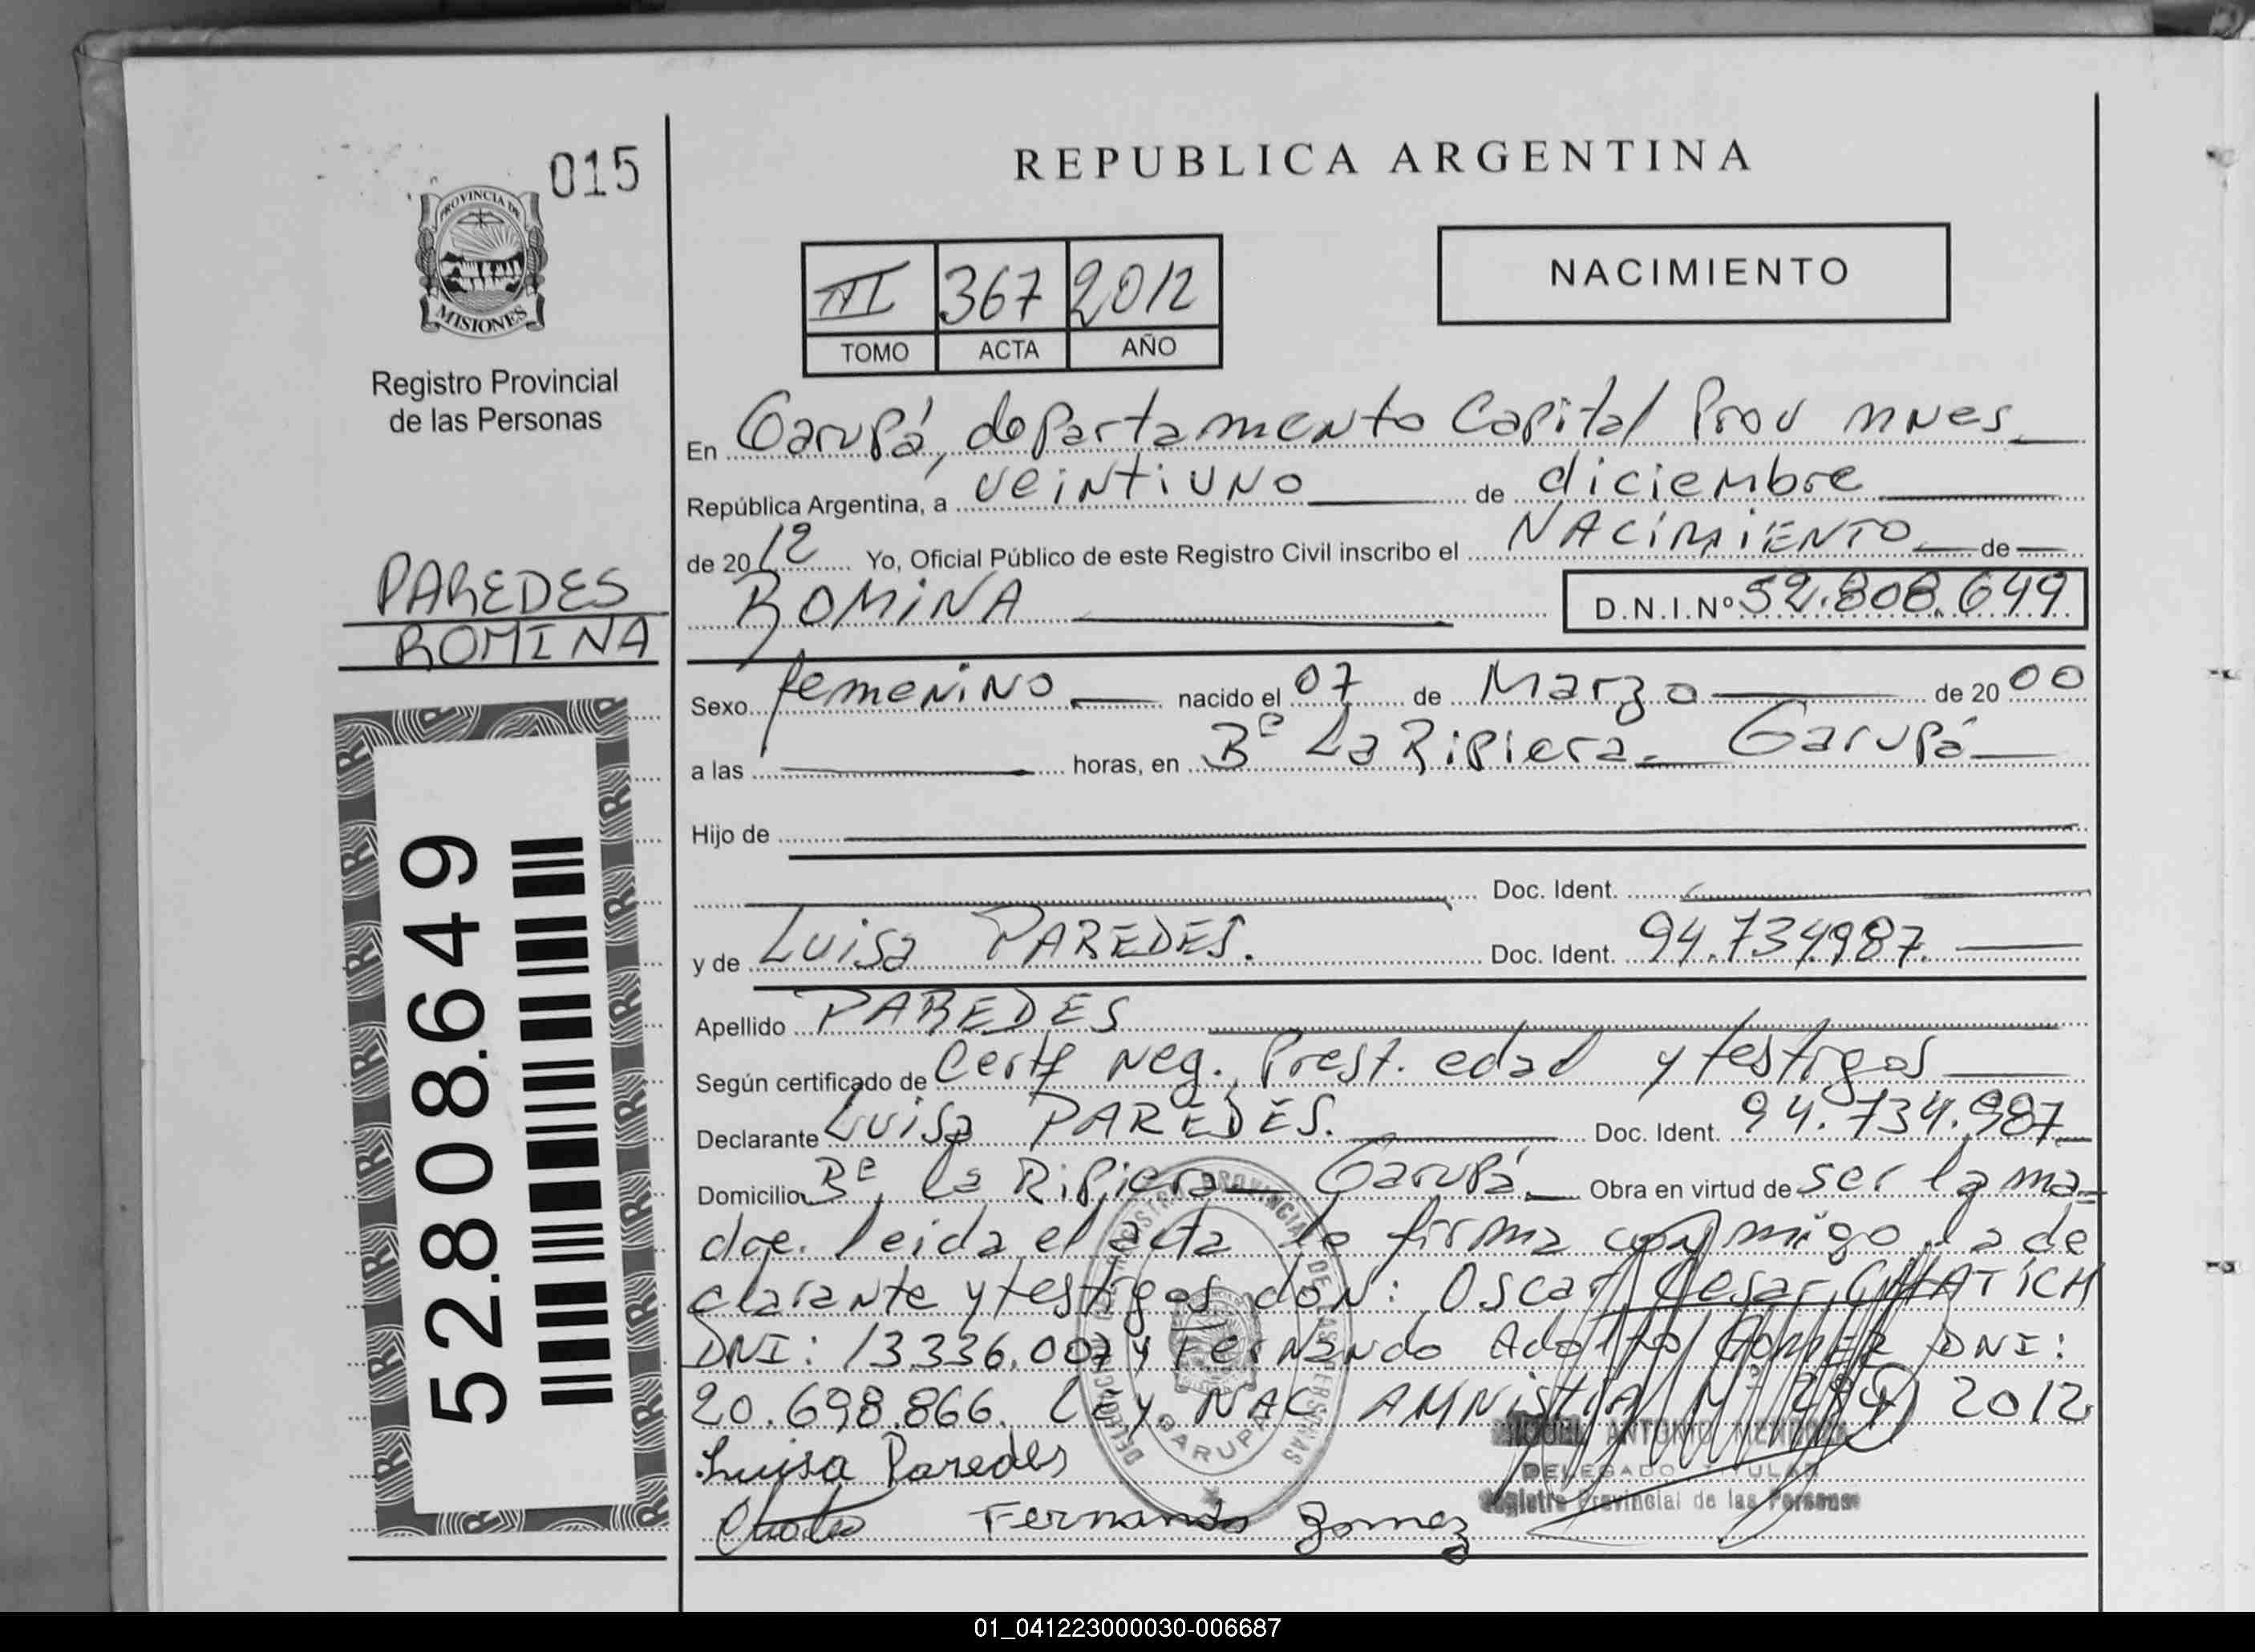 015
PROVINCIA DE
MISIONES
Registro Provincial
de las Personas
PAREDES
ROMINA
52.808.649
REPUBLICA ARGENTINA
III 367 2012
TOMO ACTA AÑO
NACIMIENTO
En Garupá, departamento Capital Prov mnes
República Argentina, a veintiuno de diciembre
de 2012 Yo, Oficial Público de este Registro Civil inscribo el NACIMIENTO de
ROMINA D.N.I.Nº 52.808.649
Sexo femenino nacido el 07 de Marzo de 2000
a las horas, en Bº La Ripiera - Garupá
Hijo de
Doc. Ident.
y de Luisa PAREDES. Doc. Ident. 94.734987.
Apellido PAREDES
Según certificado de Certf Neg. Prest. edad y testigos
Declarante Luisa PAREDES. Doc. Ident. 94.734.987
Domicilio Bº La Ripiera - Garupá Obra en virtud de ser la ma=
dre. leida el acta la firma conmigo la de
clarante y testigos don: Oscar Cesar
DNI: 13.336.007 y Fernando Adolfo GOMEZ DNI:
20.698.866. Ley NAC AMNistIA Nº 2012
Luisa Paredes
Fernando Gomez
REGISTRO PROVINCIAL DE LAS PERSONAS
DELEGACION
GARUPA
ANTONIO
DELEGADO TITULAR
Registro Provincial de las Personas
01_041223000030-006687